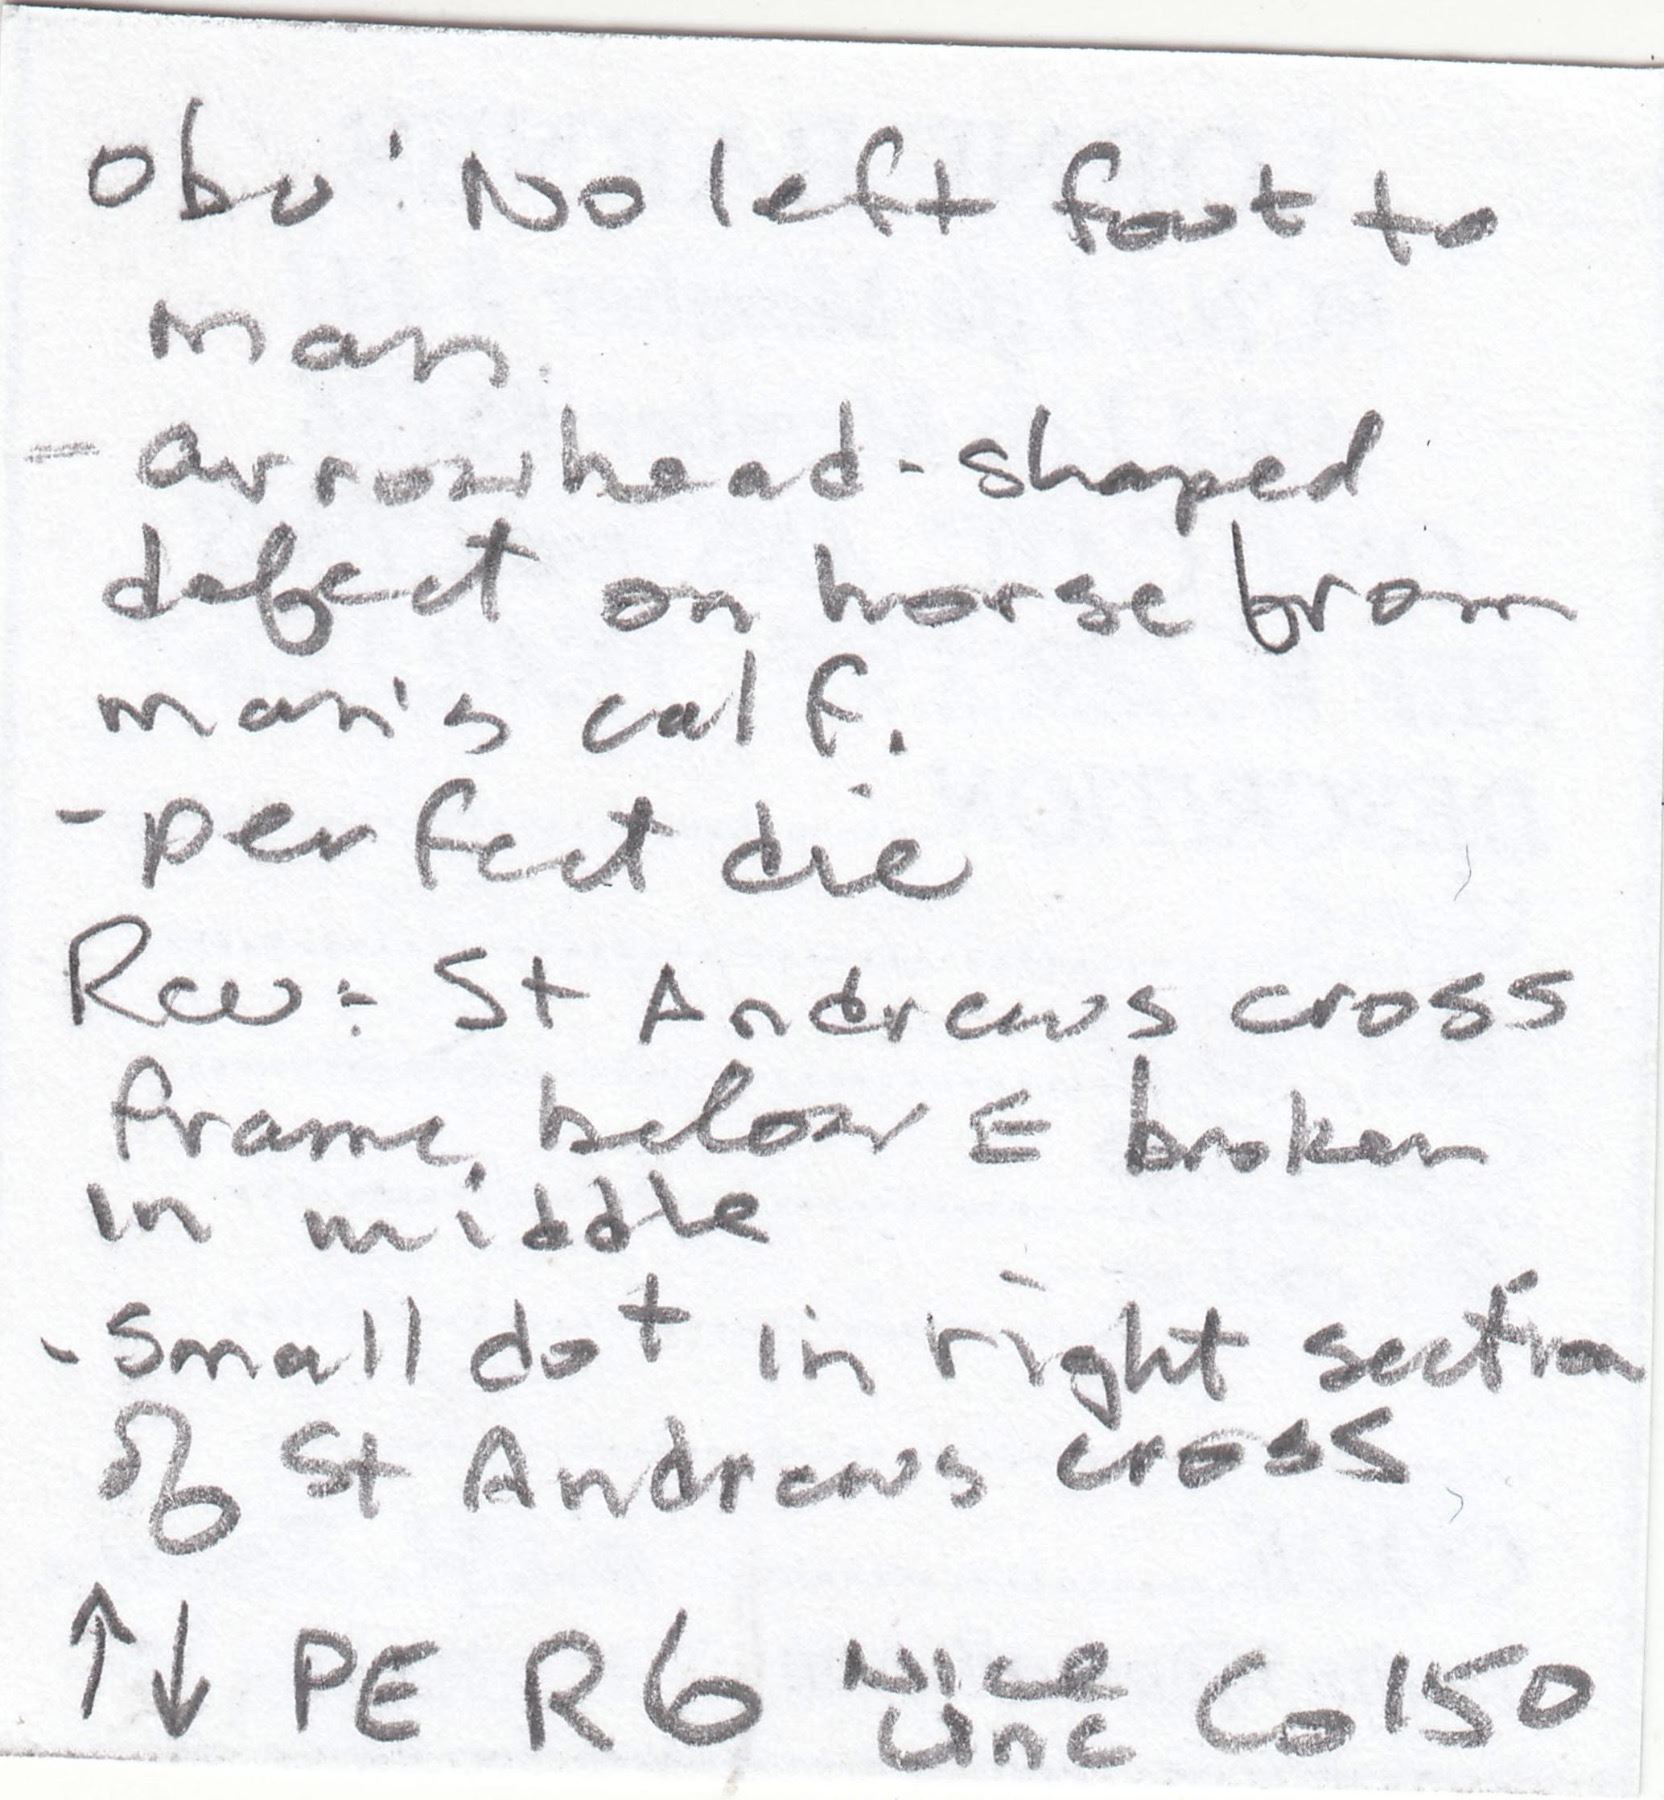 Obv: No left foot to
man.
- arrowhead-shaped
defect on horse from
man's calf.
- perfect die
Rev: St Andrews cross
frame, below E broken
in middle
- small dot in right section
of St Andrews cross
↑↓ PE R6 Nice Unc Co 150